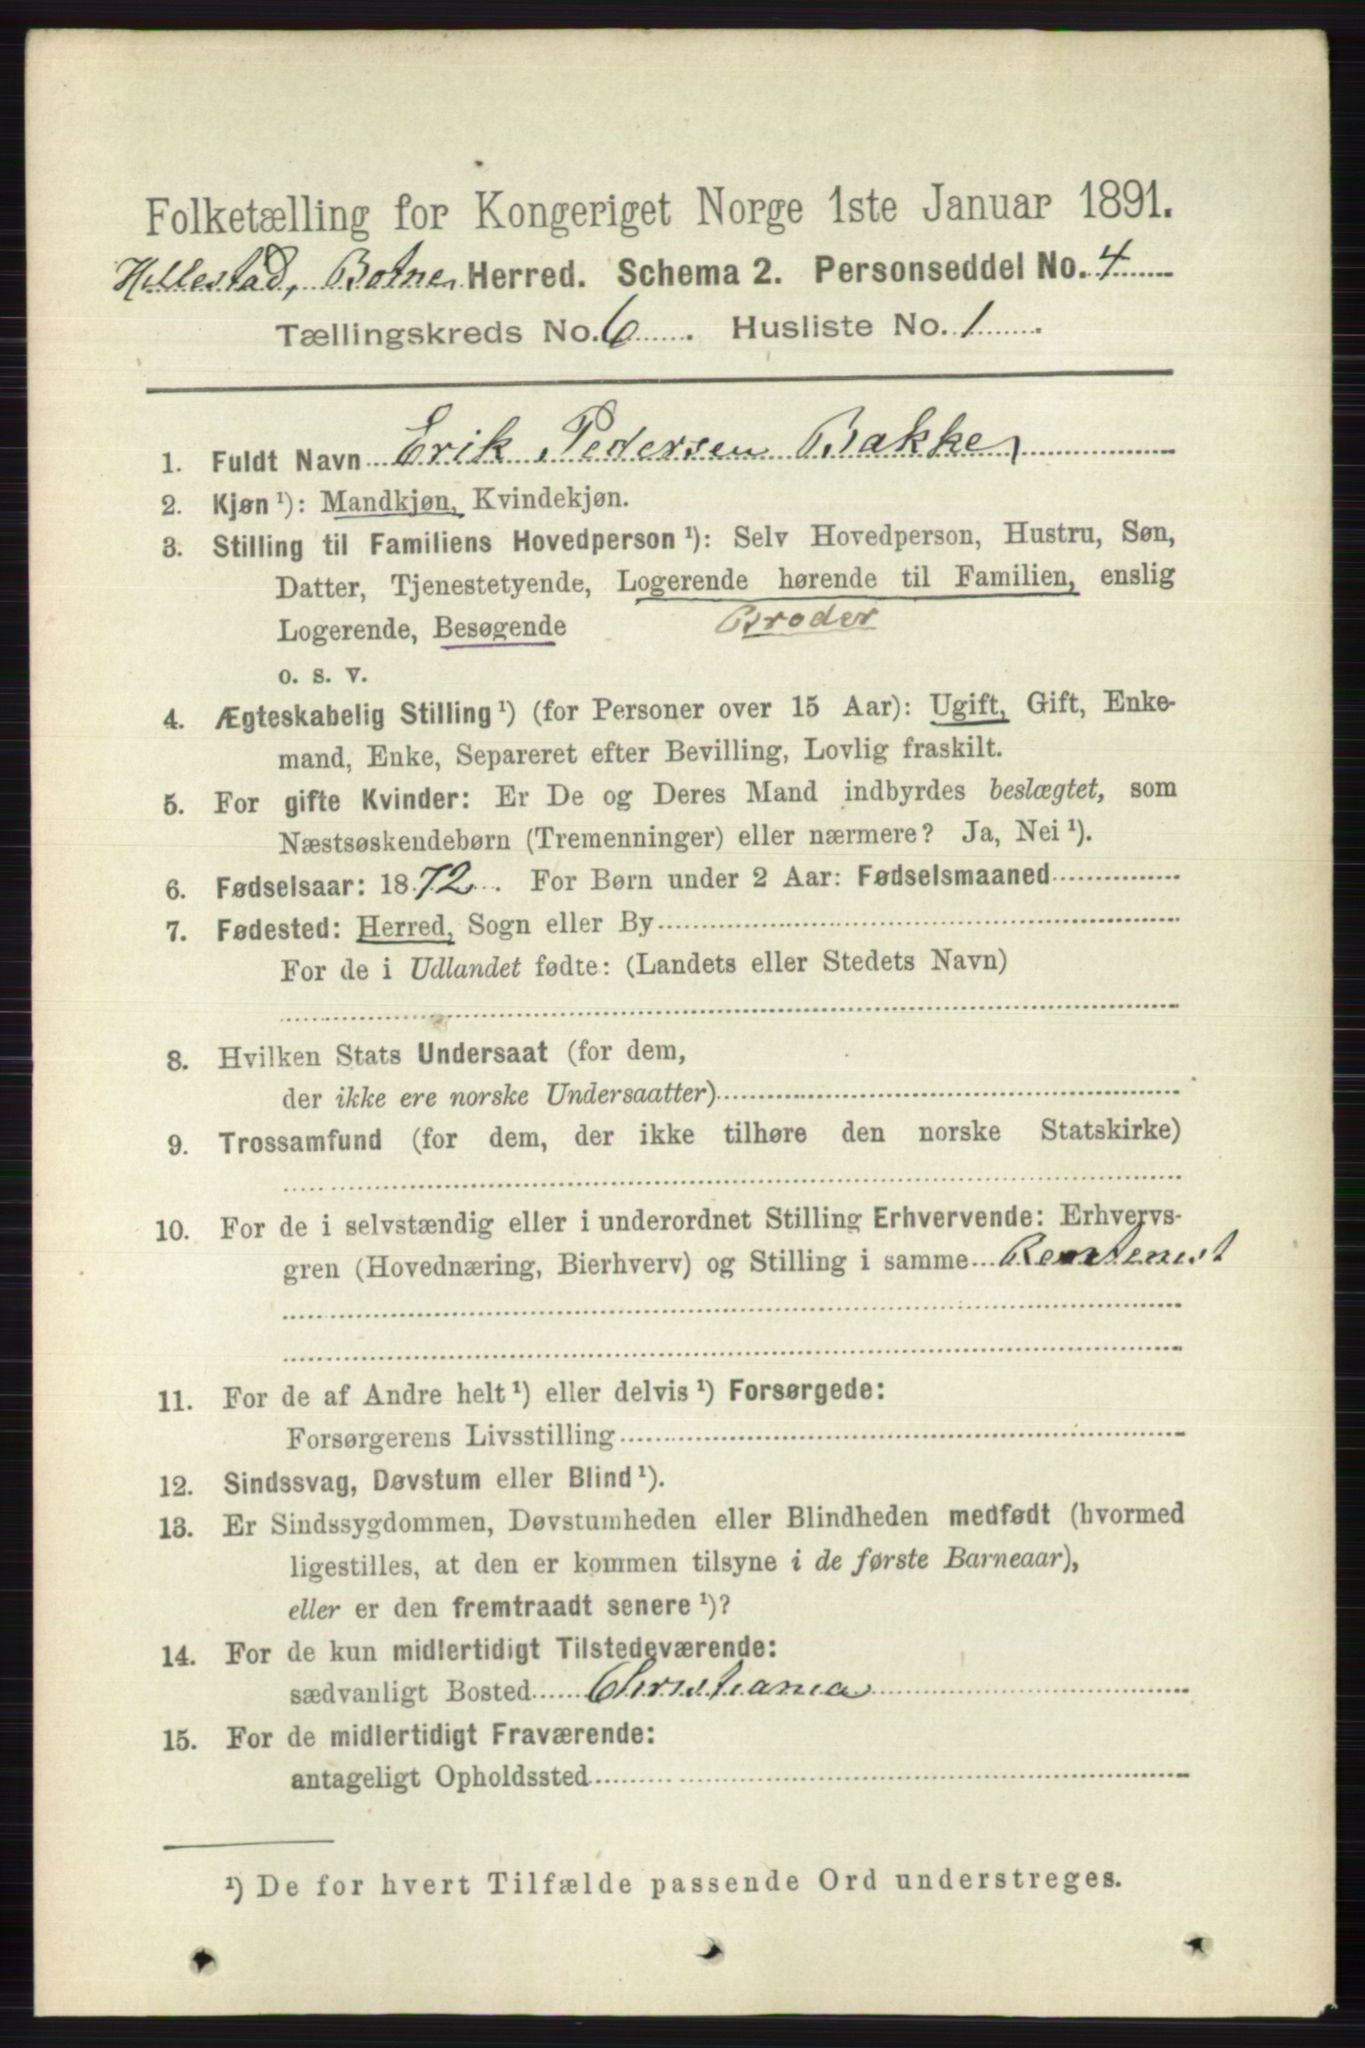 Folketælling for Kongeriget Norge 1ste Januar 1891.
Hillestad, Botne Herred. Schema 2. Personseddel No. 4
Tællingskreds No. 6. Husliste No. 1.
1. Fuldt Navn Erik Pedersen Bakke
2. Kjøn ¹): Mandkjøn, Kvindekjøn.
3. Stilling til Familiens Hovedperson ¹): Selv Hovedperson, Hustru, Søn,
Datter, Tjenestetyende, Logerende hørende til Familien, enslig
Logerende, Besøgende Broder
o. s. v.
4. Ægteskabelig Stilling ¹) (for Personer over 15 Aar): Ugift, Gift, Enke-
mand, Enke, Separeret efter Bevilling, Lovlig fraskilt.
5. For gifte Kvinder: Er De og Deres Mand indbyrdes beslægtet, som
Næstsøskendebørn (Tremenninger) eller nærmere? Ja, Nei ¹).
6. Fødselsaar: 1872. For Børn under 2 Aar: Fødselsmaaned
7. Fødested: Herred, Sogn eller By
For de i Udlandet fødte: (Landets eller Stedets Navn)
8. Hvilken Stats Undersaat (for dem,
der ikke ere norske Undersaatter)
9. Trossamfund (for dem, der ikke tilhøre den norske Statskirke)
10. For de i selvstændig eller i underordnet Stilling Erhvervende: Erhvervs-
gren (Hovednæring, Bierhverv) og Stilling i samme
11. For de af Andre helt ¹) eller delvis ¹) Forsørgede:
Forsørgerens Livsstilling
12. Sindssvag, Døvstum eller Blind ¹).
13. Er Sindssygdommen, Døvstumheden eller Blindheden medfødt (hvormed
ligestilles, at den er kommen tilsyne i de første Barneaar),
eller er den fremtraadt senere ¹)?
14. For de kun midlertidigt Tilstedeværende:
sædvanligt Bosted Christiania
15. For de midlertidigt Fraværende:
antageligt Opholdssted
¹) De for hvert Tilfælde passende Ord understreges.